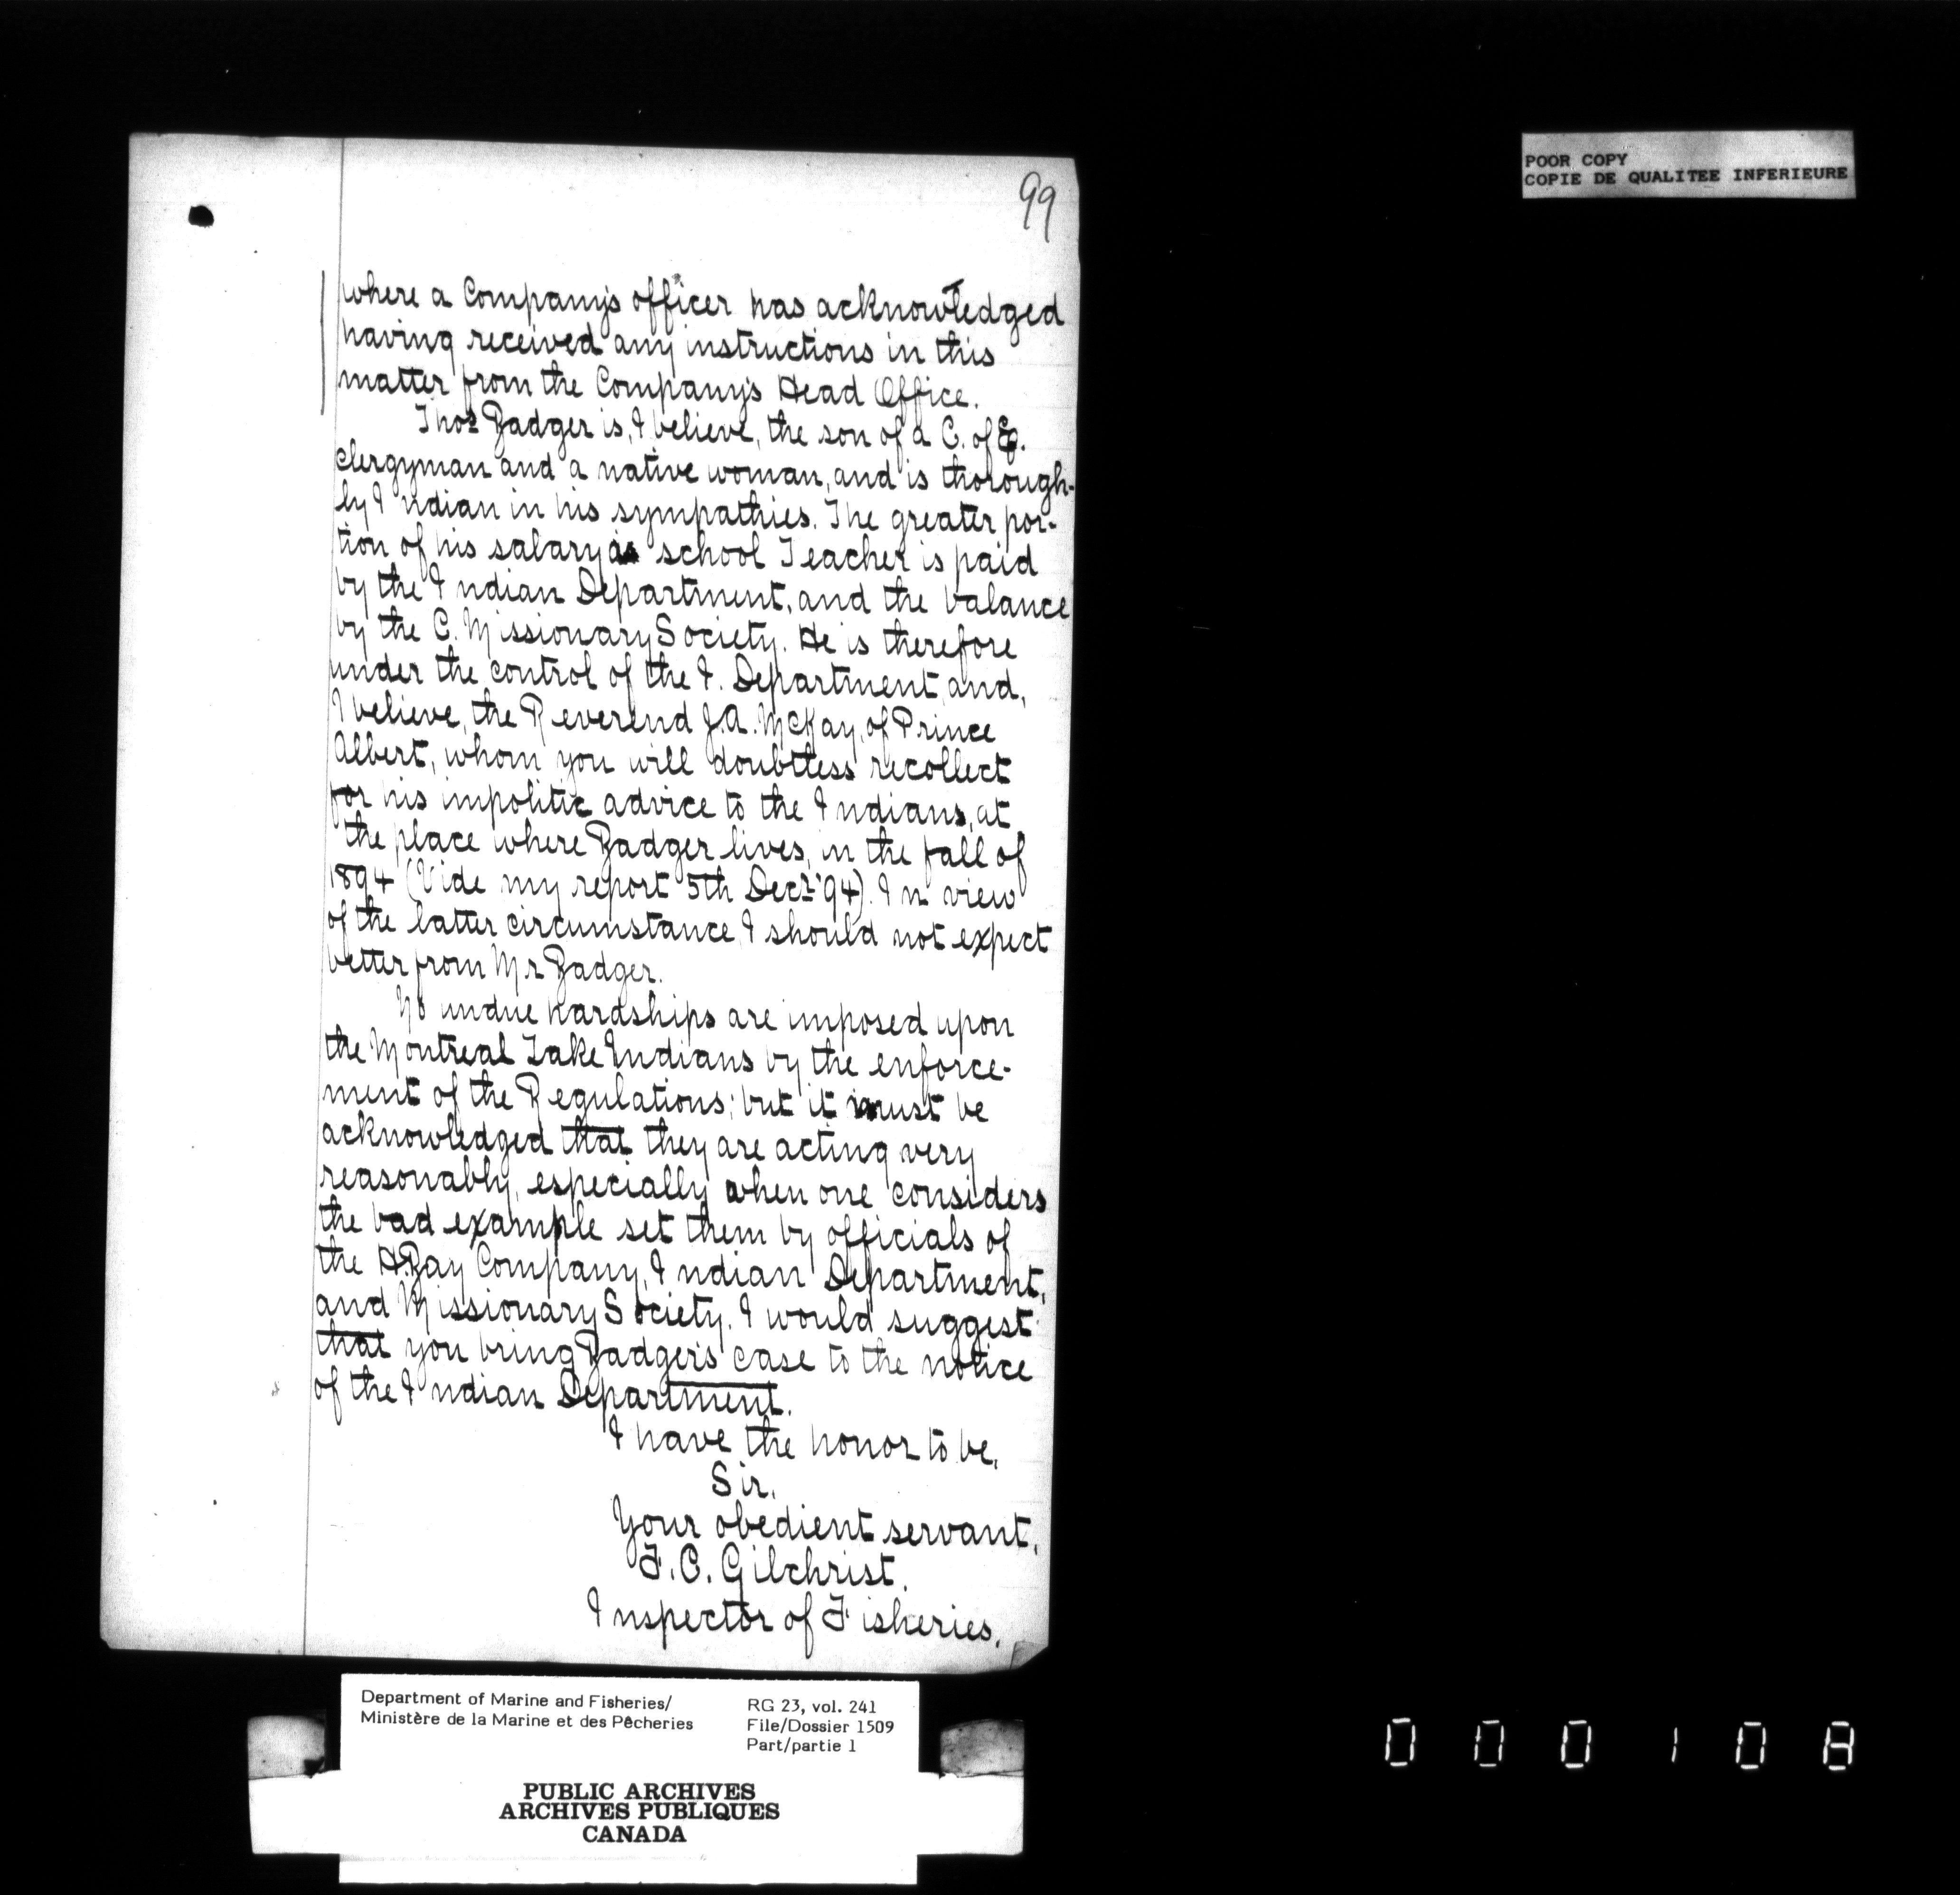 POOR COPY
COPIE DE QUALITEE INFERIEURE
99
where a Company's officer has acknowledged
having received any instructions in this
matter from the Company's Head Office.
Thos Badger is, I believe, the son of a C. of E.
clergyman and a native woman, and is thorough-
ly Indian in his sympathies. The greater por-
tion of his salary as school Teacher is paid
by the Indian Department, and the balance
by the C. Missionary Society. He is therefore
under the control of the I. Department and,
I believe, the Reverend J.A. McKay, of Prince
Albert, whom you will doubtless recollect
for his impolitic advice to the Indians, at
the place where Badger lives, in the fall of
1894 (Vide my report 5th Decr '94). In view
of the latter circumstance I should not expect
better from Mr Badger.
No undue hardships are imposed upon
the Montreal Lake Indians by the enforce-
ment of the Regulations; but it must be
acknowledged that they are acting very
reasonably, especially when one considers
the bad example set them by officials of
the H.Bay Company, Indian Department,
and Missionary Society. I would suggest
that you bring Badger's case to the notice
of the Indian Department.
I have the honor to be,
Sir,
Your obedient servant,
F.C. Gilchrist.
Inspector of Fisheries.
Department of Marine and Fisheries/
Ministère de la Marine et des Pêcheries
RG 23, vol. 241
File/Dossier 1509
Part/partie 1
PUBLIC ARCHIVES
ARCHIVES PUBLIQUES
CANADA
000108